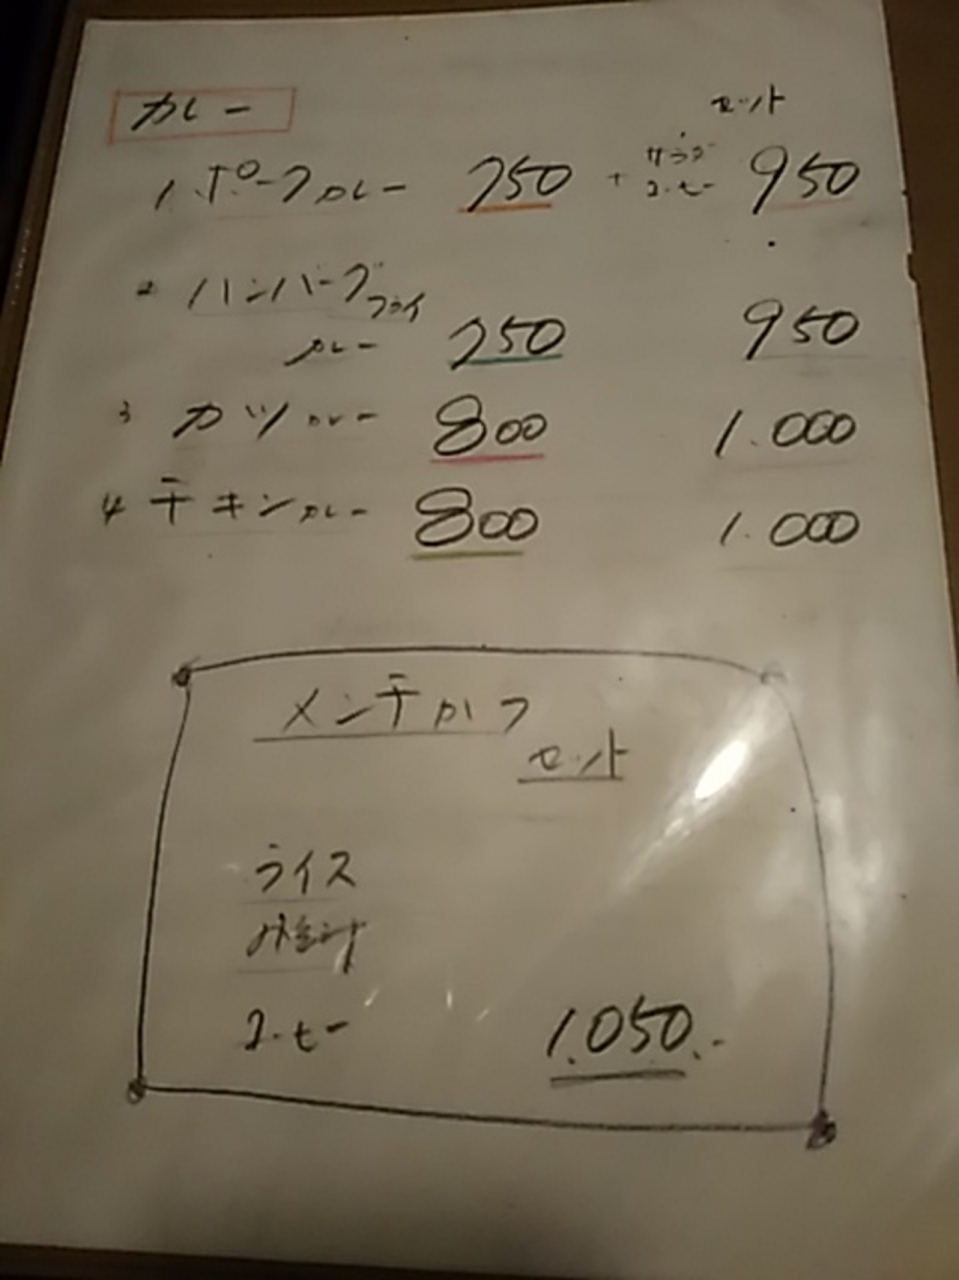 カレー
セット
1. ポークカレー 750 + サラダ コーヒー 950
2 ハンバーグフライ
カレー 750 950
3 カツカレー 800 1.000
4 チキンカレー 800 1.000
メンチかつ
セット
ライス
みそ汁
コーヒー 1.050.-